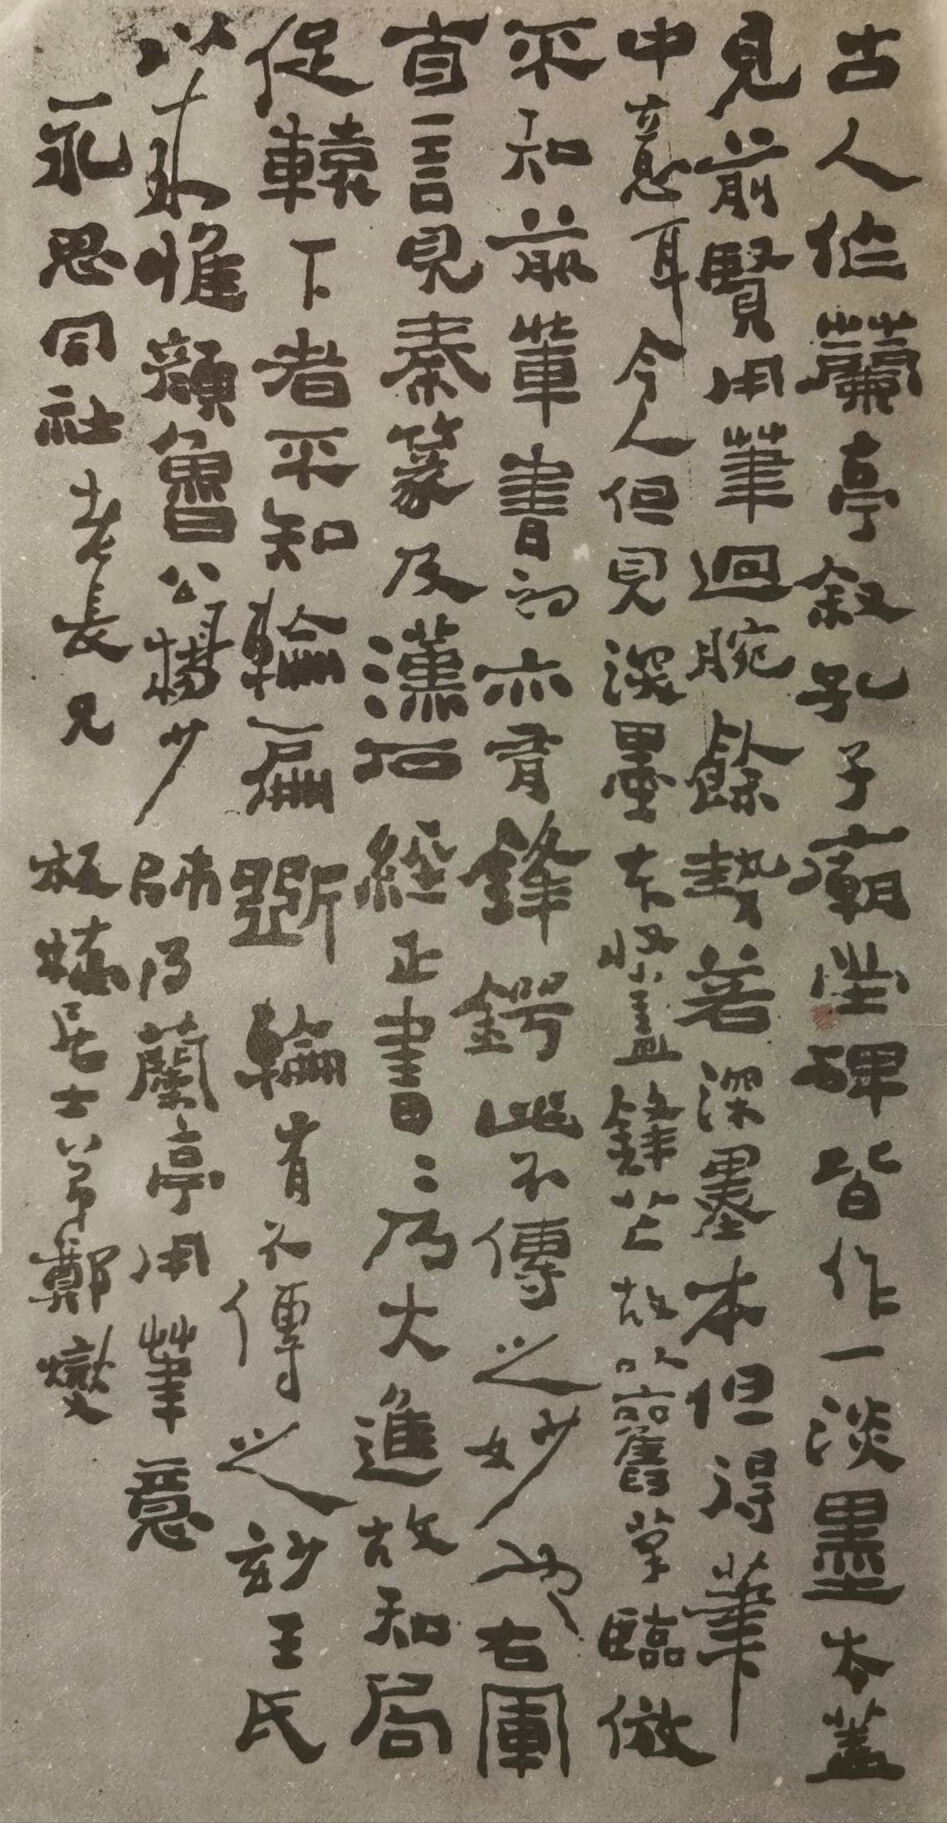 古人作蘭亭叙孔子廟堂碑皆作一淡墨本蓋
見前賢用筆迴腕餘勢若深墨本但得筆
中意耳今人但見深墨本收盡鋒芒故以舊筆臨倣
不知前輩書初亦有鋒鍔此不傳之妙也右軍
自言見秦篆及漢石經正書二乃大進故知局
促轅下者不知輪扁斵輪有不傳之妙王氏
以來惟顔魯公楊少師乃蘭亭用筆意
永思同社老長兄 板橋居士弟鄭燮